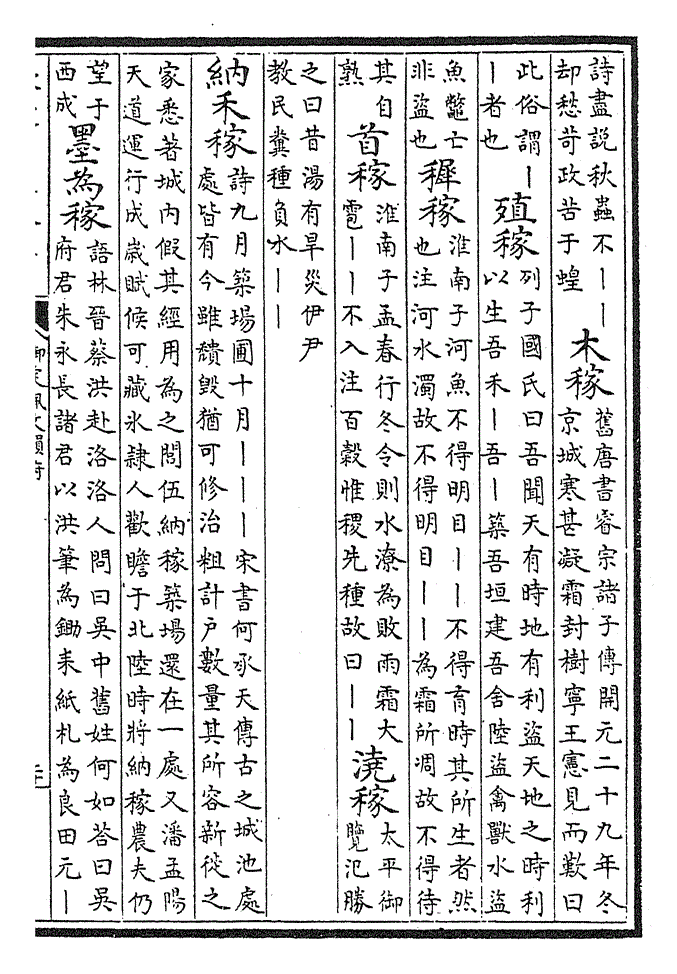 詩盡説秋蟲不丨丨
却愁苛政苦于蝗
木稼
舊唐書睿宗諸子傳開元二十九年冬
京城寒甚凝霜封樹寧王憲見而歎曰
此俗謂丨
丨者也
殖稼
列子國氏曰吾聞天有時地有利盜天地之時利
以生吾禾丨吾丨築吾垣建吾舍陸盜禽獸水盜
魚鼈亡
非盜也
稺稼
淮南子河魚不得明目丨丨不得育時其所生者然
也注河水濁故不得明目丨丨為霜所凋故不得待
其自
熟
首稼
淮南子孟春行冬令則水潦為敗雨霜大
雹丨丨不入注百穀惟稷先種故曰丨丨
澆稼
太平御
覽氾勝
之曰昔湯有旱災伊尹
教民糞種負水丨丨
納禾稼
詩九月築場圃十月丨丨丨宋書何承天傳古之城池處
處皆有今雖頽毀猶可修治粗計戶數量其所容新徙之
家悉著城内假其經用為之閭伍納稼築場還在一處又潘孟陽
天道運行成歲賦候可藏氷隸人歡瞻于北陸時將納稼農夫仍
望于
西成
墨為稼
語林晉蔡洪赴洛洛人問曰吳中舊姓何如答曰吳
府君朱永長諸君以洪筆為鋤耒紙札為良田元丨
御定佩文韻府